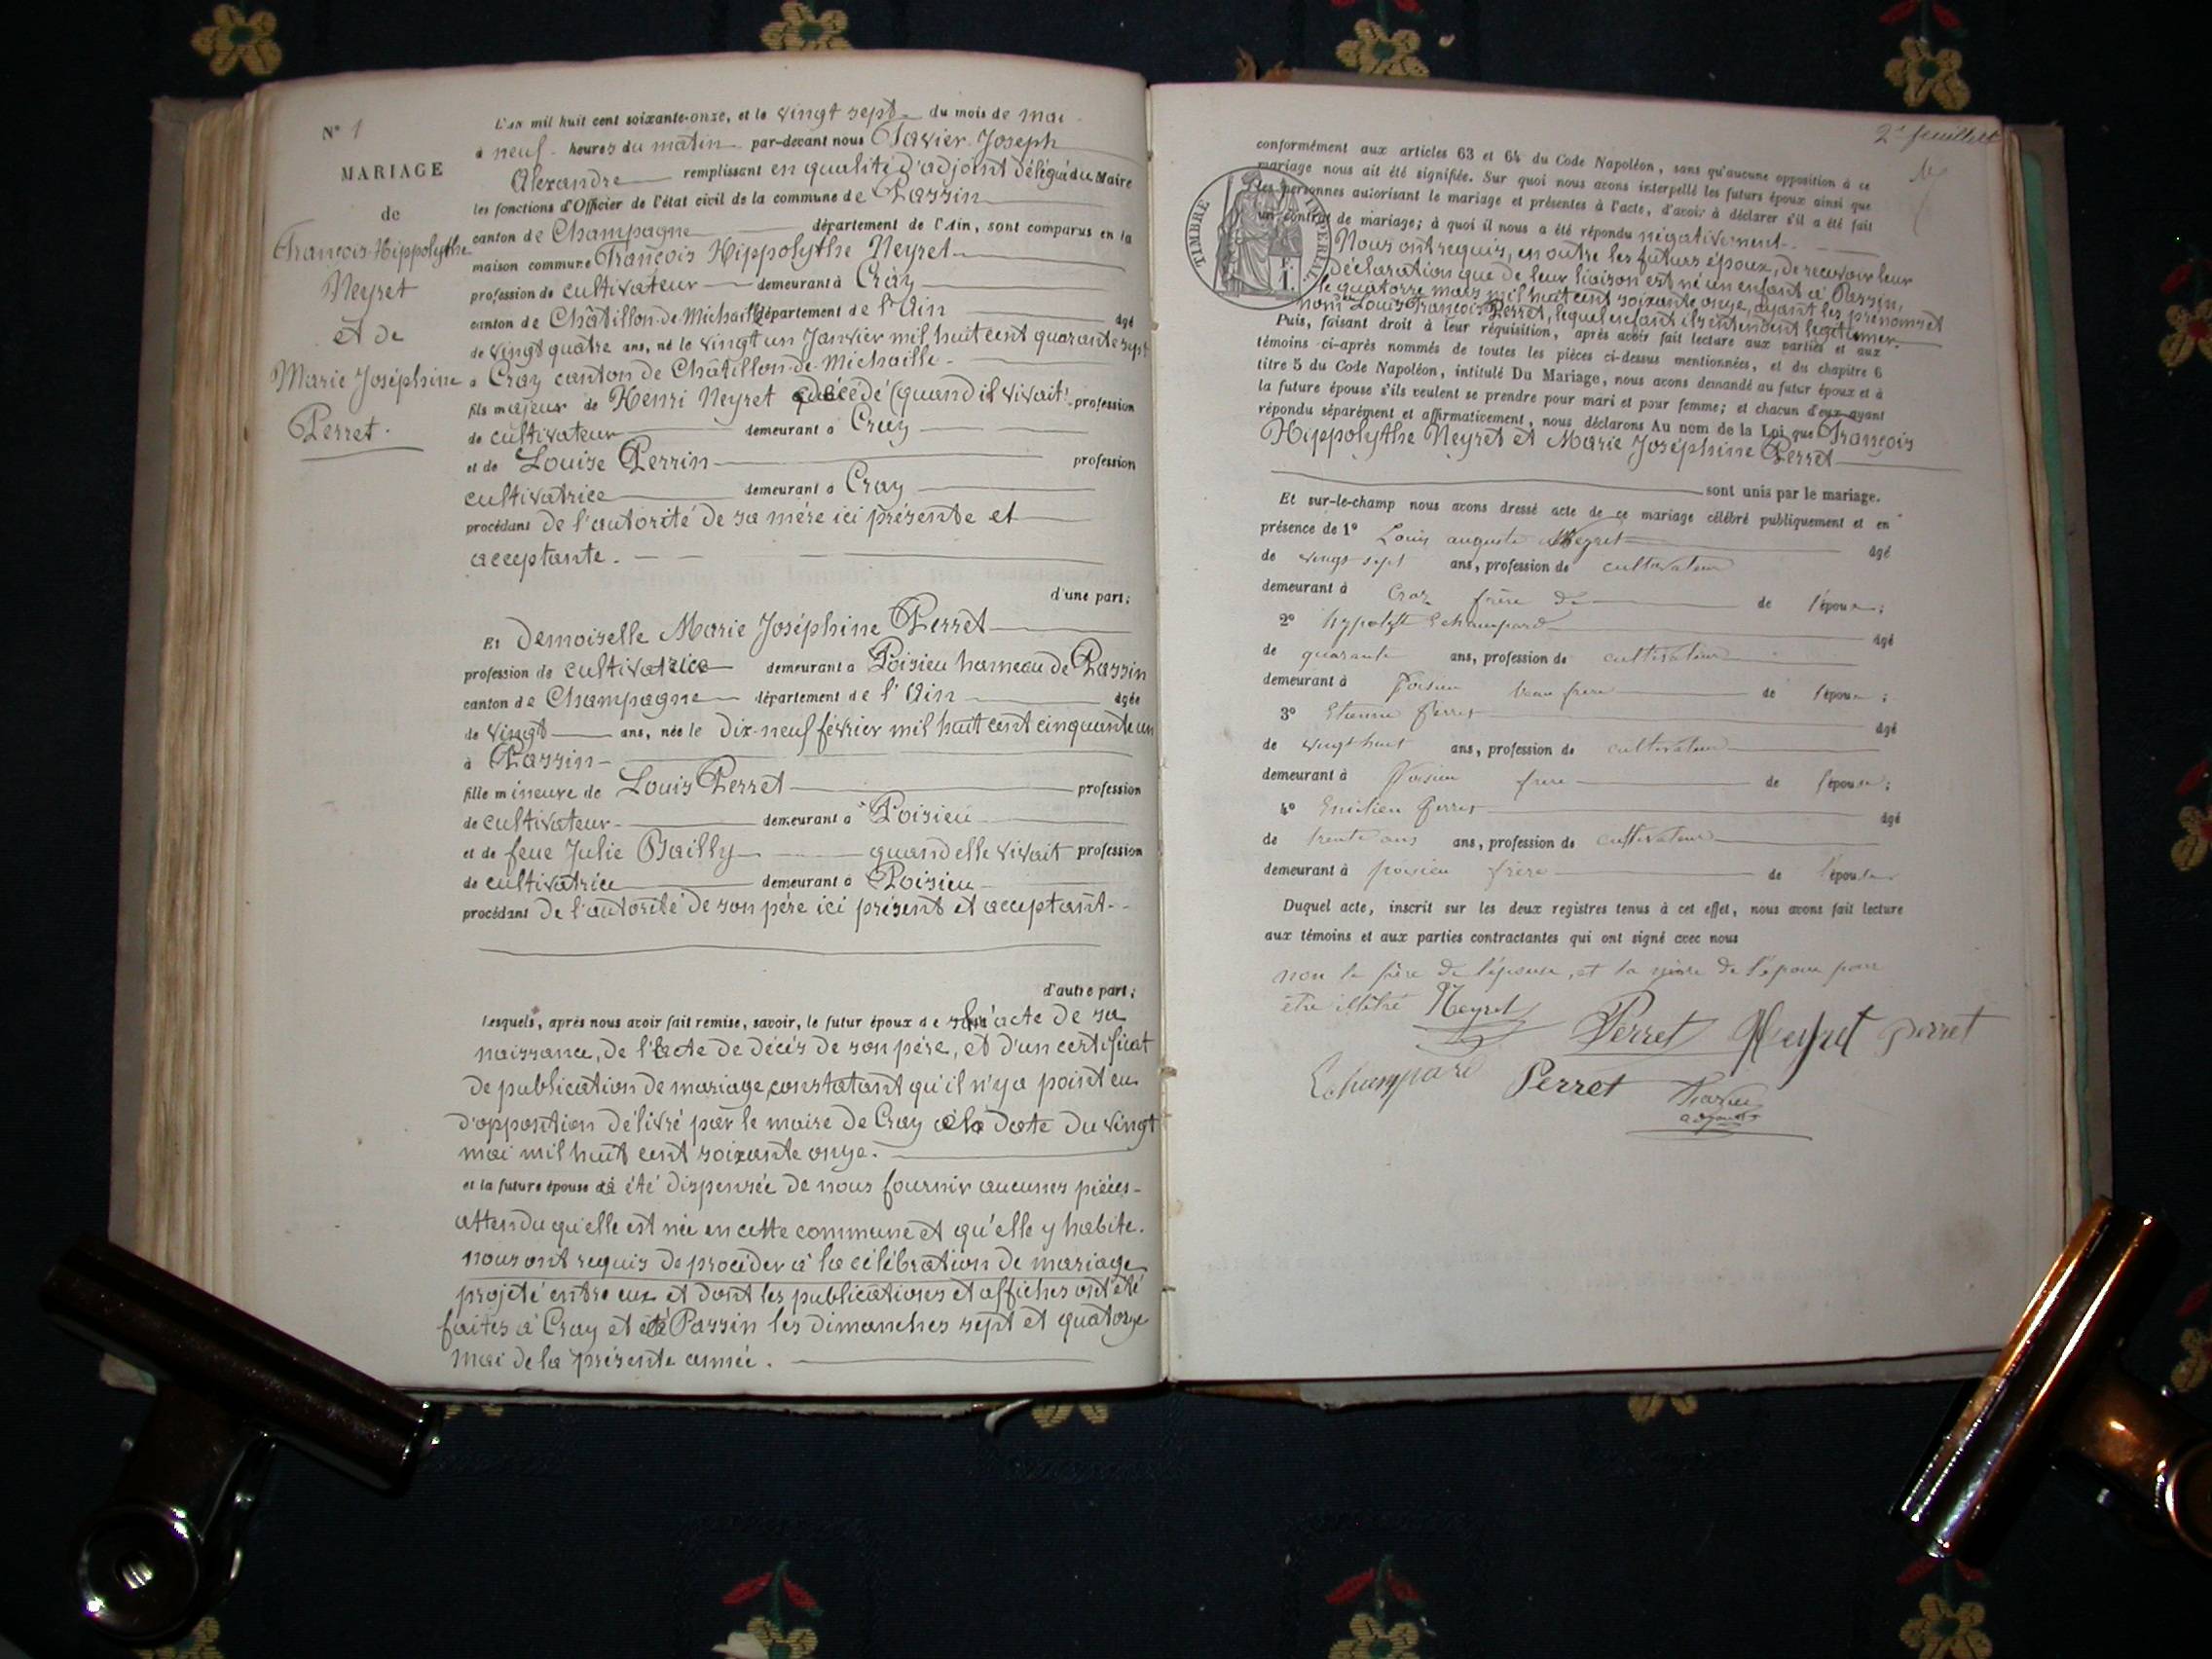 N° 1
MARIAGE
de
François-Hippolythe
Neyret
et de
Marie Joséphine
Perret.
L'an mil huit cent soixante-onze, et le vingt sept du mois de mai
à neuf heures du matin par-devant nous Tavier Joseph
Alexandre remplissant en qualité d'adjoint délégué du Maire
les fonctions d'Officier de l'état civil de la commune de Passin
canton de Champagne département de l'Ain, sont comparus en la
maison commune François Hippolythe Neyret
profession de cultivateur demeurant à Craz
canton de Châtillon-de-Michaille département de l'Ain âgé
de vingt quatre ans, né le vingt un Janvier mil huit cent quarante sept
à Craz canton de Châtillon-de-Michaille
fils majeur de Henri Neyret décédé (quand il vivait) profession
de cultivateur demeurant à Craz
et de Louise Perrin profession
cultivatrice demeurant à Craz
procédant de l'autorité de sa mère ici présente et
acceptante.
d'une part;
Et Demoiselle Marie Joséphine Perret
profession de cultivatrice demeurant à Poisieu hameau de Passin
canton de Champagne département de l'Ain âgée
de vingt ans, née le dix-neuf février mil huit cent cinquante un
à Passin
fille mineure de Louis Perret profession
de cultivateur demeurant à Poisieu
et de feue Julie Bailly quand elle vivait profession
de cultivatrice demeurant à Poisieu
procédant de l'autorité de son père ici présent et acceptant
d'autre part;
Lesquels, après nous avoir fait remise, savoir, le futur époux de l'acte de sa
naissance, de l'acte de décès de son père, et d'un certificat
de publication de mariage constatant qu'il n'y a point eu
d'opposition délivré par le maire de Craz à la date du vingt
mai mil huit cent soixante onze.
et la future épouse a été dispensée de nous fournir aucunes pièces
attendu qu'elle est née en cette commune et qu'elle y habite.
nous ont requis de procéder à la célébration de mariage
projeté entre eux et dont les publications et affiches ont été
faites à Craz et à Passin les dimanches sept et quatorze
mai de la présente année.
2e feuillet
conformément aux articles 63 et 64 du Code Napoléon, sans qu'aucune opposition à ce
mariage nous ait été signifiée. Sur quoi nous avons interpellé les futurs époux ainsi que
les personnes autorisant le mariage et présentes à l'acte, d'avoir à déclarer s'il a été fait
un contrat de mariage; à quoi il nous a été répondu négativement
TIMBRE IMPERIAL
F. 1.
Nous ont requis, en outre les futurs époux, de recevoir leur
déclaration que de leur liaison est né un enfant à Passin,
le quatorze mars mil huit cent soixante onze, ayant les prénoms et
nom Louis François Perret, lequel enfant ils entendent légitimer.
Puis, faisant droit à leur réquisition, après avoir fait lecture aux parties et aux
témoins ci-après nommés de toutes les pièces ci-dessus mentionnées, et du chapitre 6
titre 5 du Code Napoléon, intitulé Du Mariage, nous avons demandé au futur époux et à
la future épouse s'ils veulent se prendre pour mari et pour femme; et chacun d'eux ayant
répondu séparément et affirmativement, nous déclarons Au nom de la Loi que François
Hippolythe Neyret et Marie Joséphine Perret
sont unis par le mariage.
Et sur-le-champ nous avons dressé acte de ce mariage célébré publiquement et en
présence de 1° Louis auguste Neyret âgé
de vingt sept ans, profession de cultivateur
demeurant à Craz frère de de l'époux;
2° hypolyte Echampard âgé
de quarante ans, profession de cultivateur
demeurant à Poisieu beau frère de l'époux;
3° Etienne Perret âgé
de vingt huit ans, profession de cultivateur
demeurant à Poisieu frère de l'épouse;
4° Perret âgé
de trente ans ans, profession de cultivateur
demeurant à poisieu frère de l'épouse
Duquel acte, inscrit sur les deux registres tenus à cet effet, nous avons fait lecture
aux témoins et aux parties contractantes qui ont signé avec nous
non le père de l'épouse, et la mère de l'époux pour
être illitré Neyret
Perret Neyret perret
Echampard Perret Tavier
adjoint